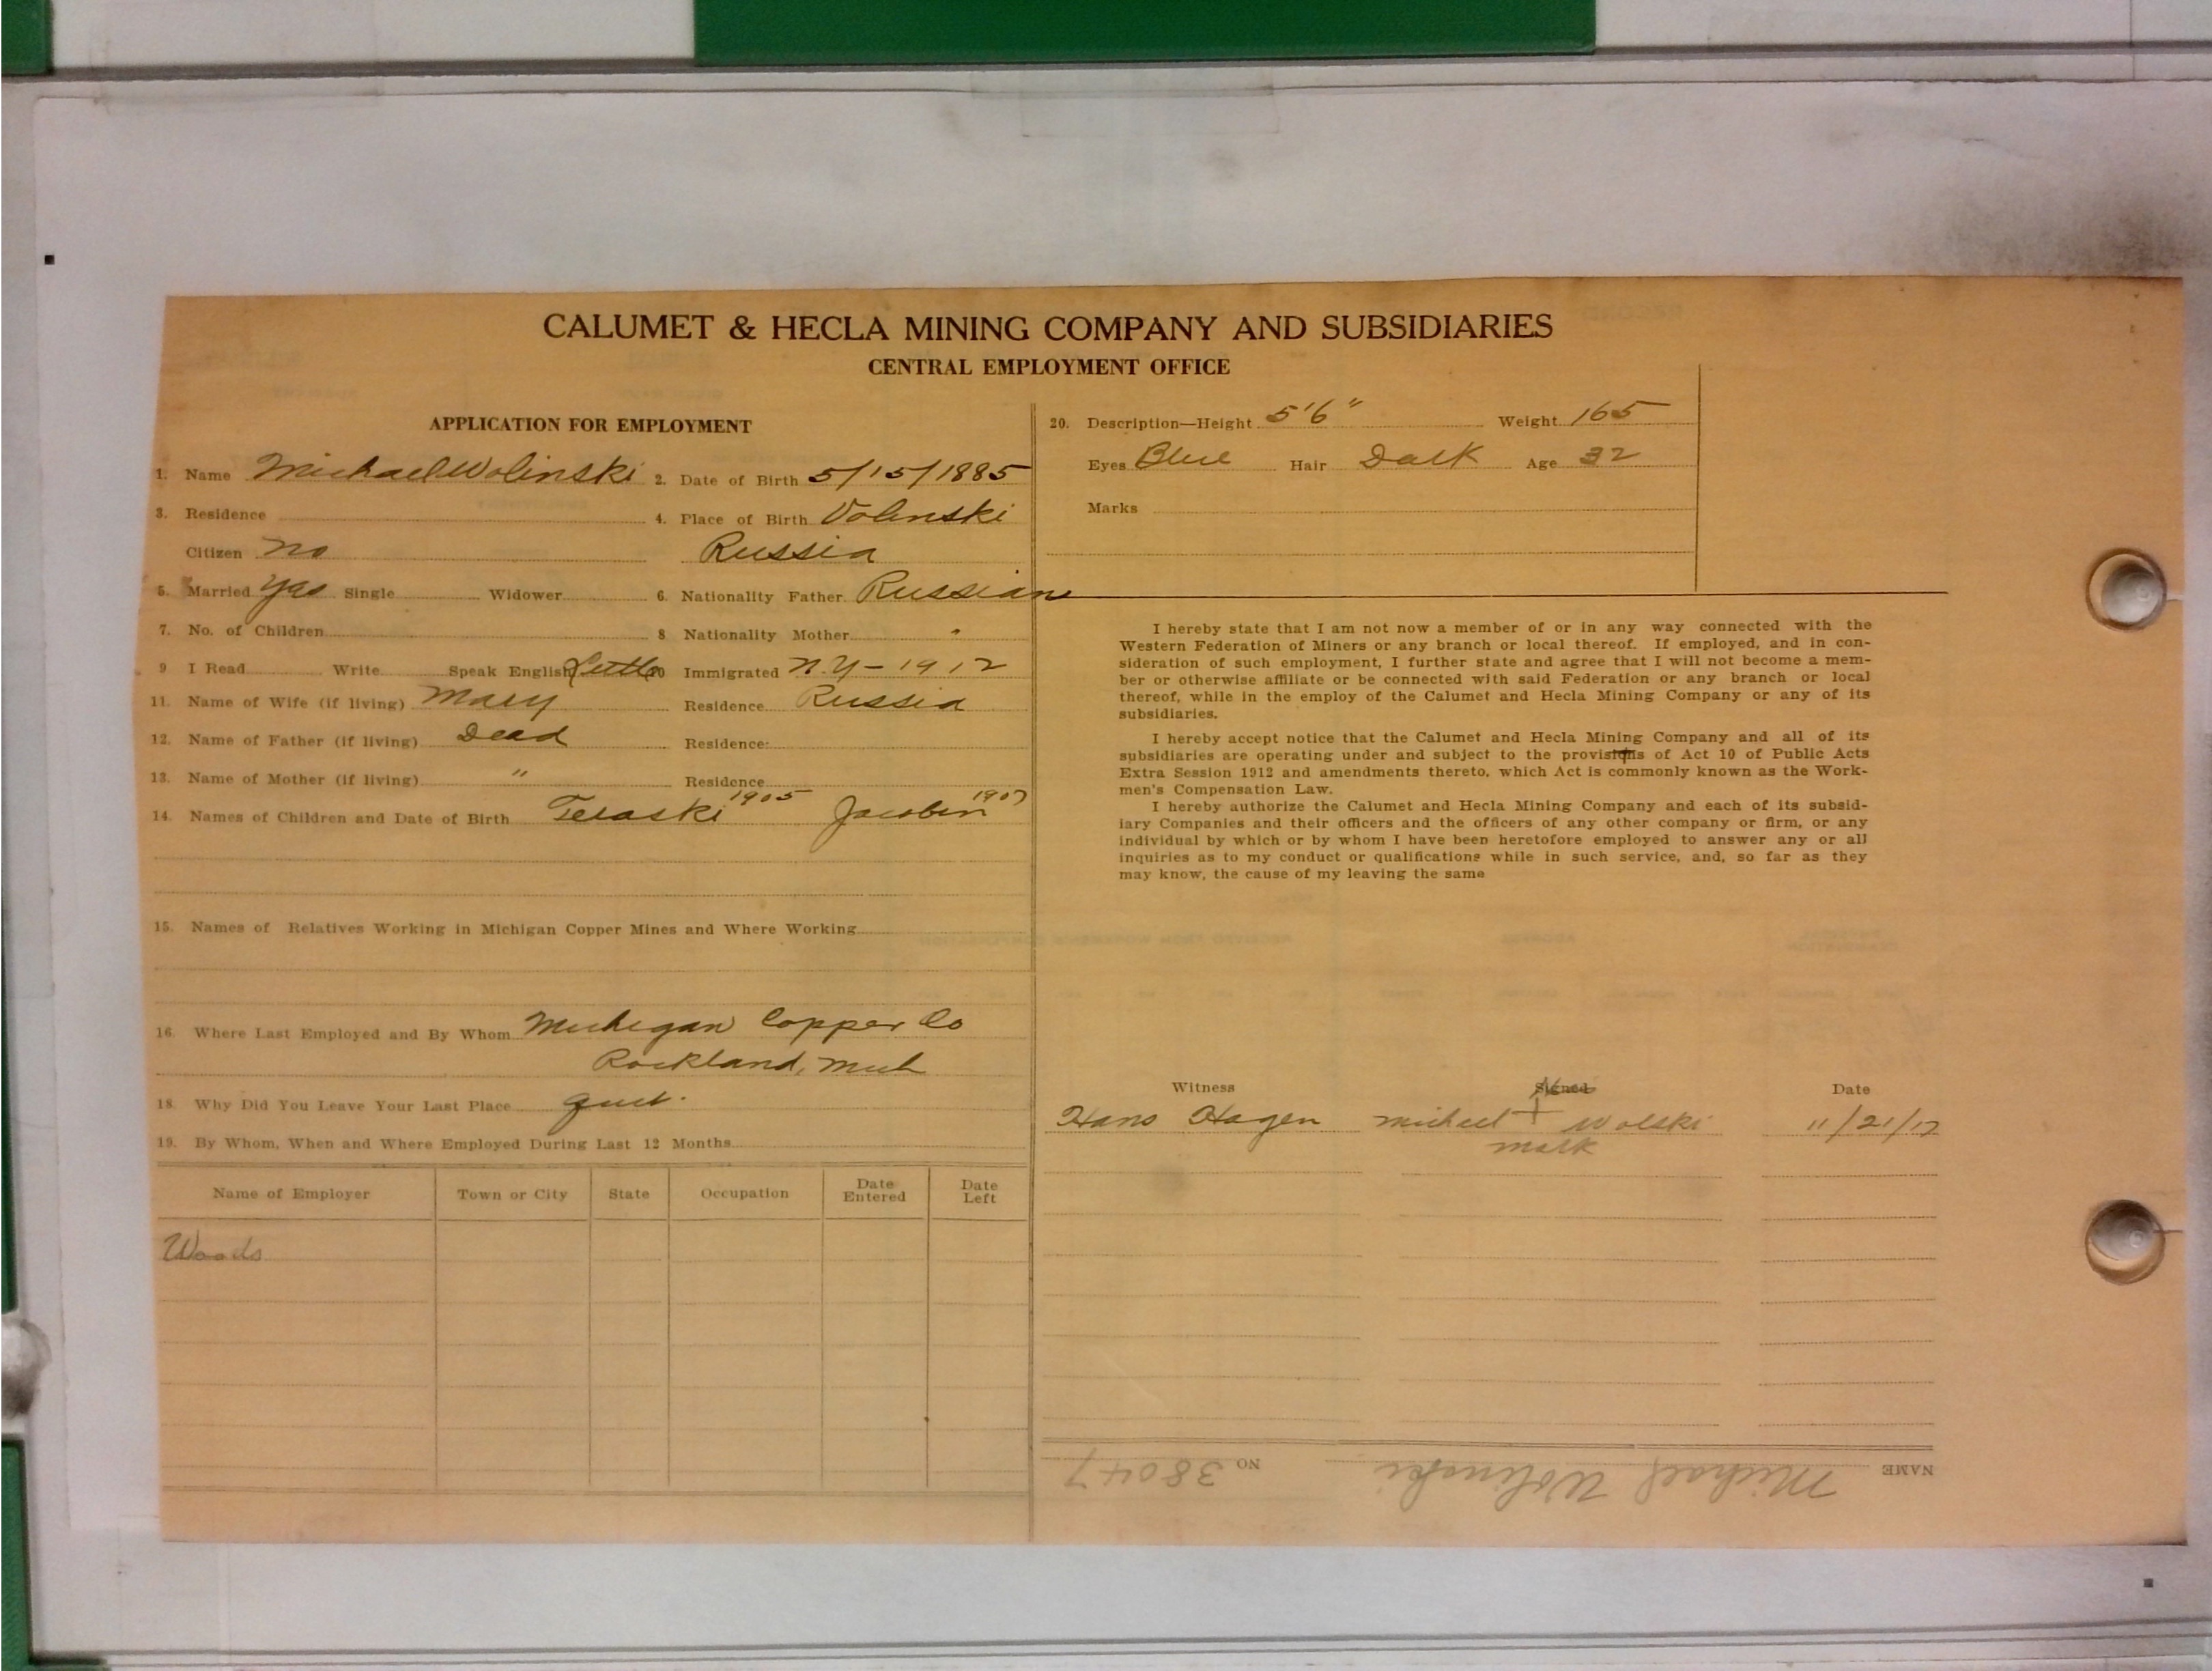 CALUMET & HECLA MINING COMPANY AND SUBSIDIARIES
CENTRAL EMPLOYMENT OFFICE
APPLICATION FOR EMPLOYMENT
1. Name Michael Wolinski 2. Date of Birth 5/15/1885
3. Residence 4. Place of Birth Volinski
Citizen no Russia
5. Married yes Single Widower 6. Nationality Father Russian
7. No. of Children 8 Nationality Mother "
9 I Read Write Speak English Little 10 Immigrated N.Y - 1912
11. Name of Wife (if living) Mary Residence Russia
12. Name of Father (if living) Dead Residence:
13. Name of Mother (if living) " Residence
14. Names of Children and Date of Birth Teraski 1905 Jacobin 1907
15. Names of Relatives Working in Michigan Copper Mines and Where Working
16. Where Last Employed and By Whom Michigan Copper Co
Rockland, Mich
18. Why Did You Leave Your Last Place quit.
19. By Whom, When and Where Employed During Last 12 Months
Name of Employer Town or City State Occupation Date Entered Date Left
Woods
20. Description—Height 5'6" Weight 165
Eyes Blue Hair Dark Age 32
Marks
I hereby state that I am not now a member of or in any way connected with the
Western Federation of Miners or any branch or local thereof. If employed, and in con-
sideration of such employment, I further state and agree that I will not become a mem-
ber or otherwise affiliate or be connected with said Federation or any branch or local
thereof, while in the employ of the Calumet and Hecla Mining Company or any of its
subsidiaries.
I hereby accept notice that the Calumet and Hecla Mining Company and all of its
subsidiaries are operating under and subject to the provisions of Act 10 of Public Acts
Extra Session 1912 and amendments thereto, which Act is commonly known as the Work-
men's Compensation Law.
I hereby authorize the Calumet and Hecla Mining Company and each of its subsid-
iary Companies and their officers and the officers of any other company or firm, or any
individual by which or by whom I have been heretofore employed to answer any or all
inquiries as to my conduct or qualifications while in such service, and, so far as they
may know, the cause of my leaving the same
Witness Signed Date
Hans Hagen Michael + Wolski 11/21/17
mark
NAME Michael Wolinski NO 38047